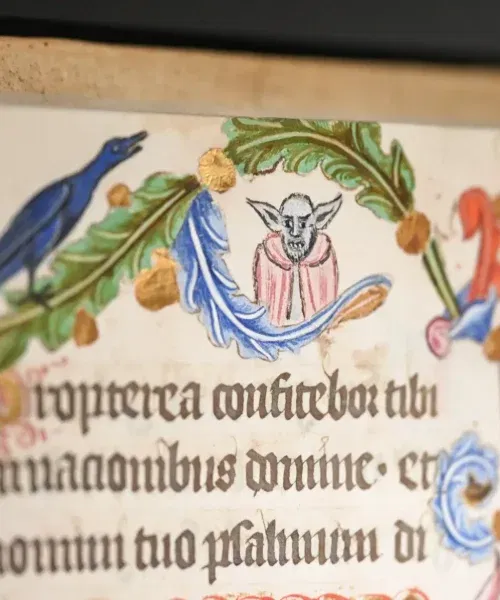 Propterea confitebor tibi
nnacionibus domine · et
nomini tuo psalmum di